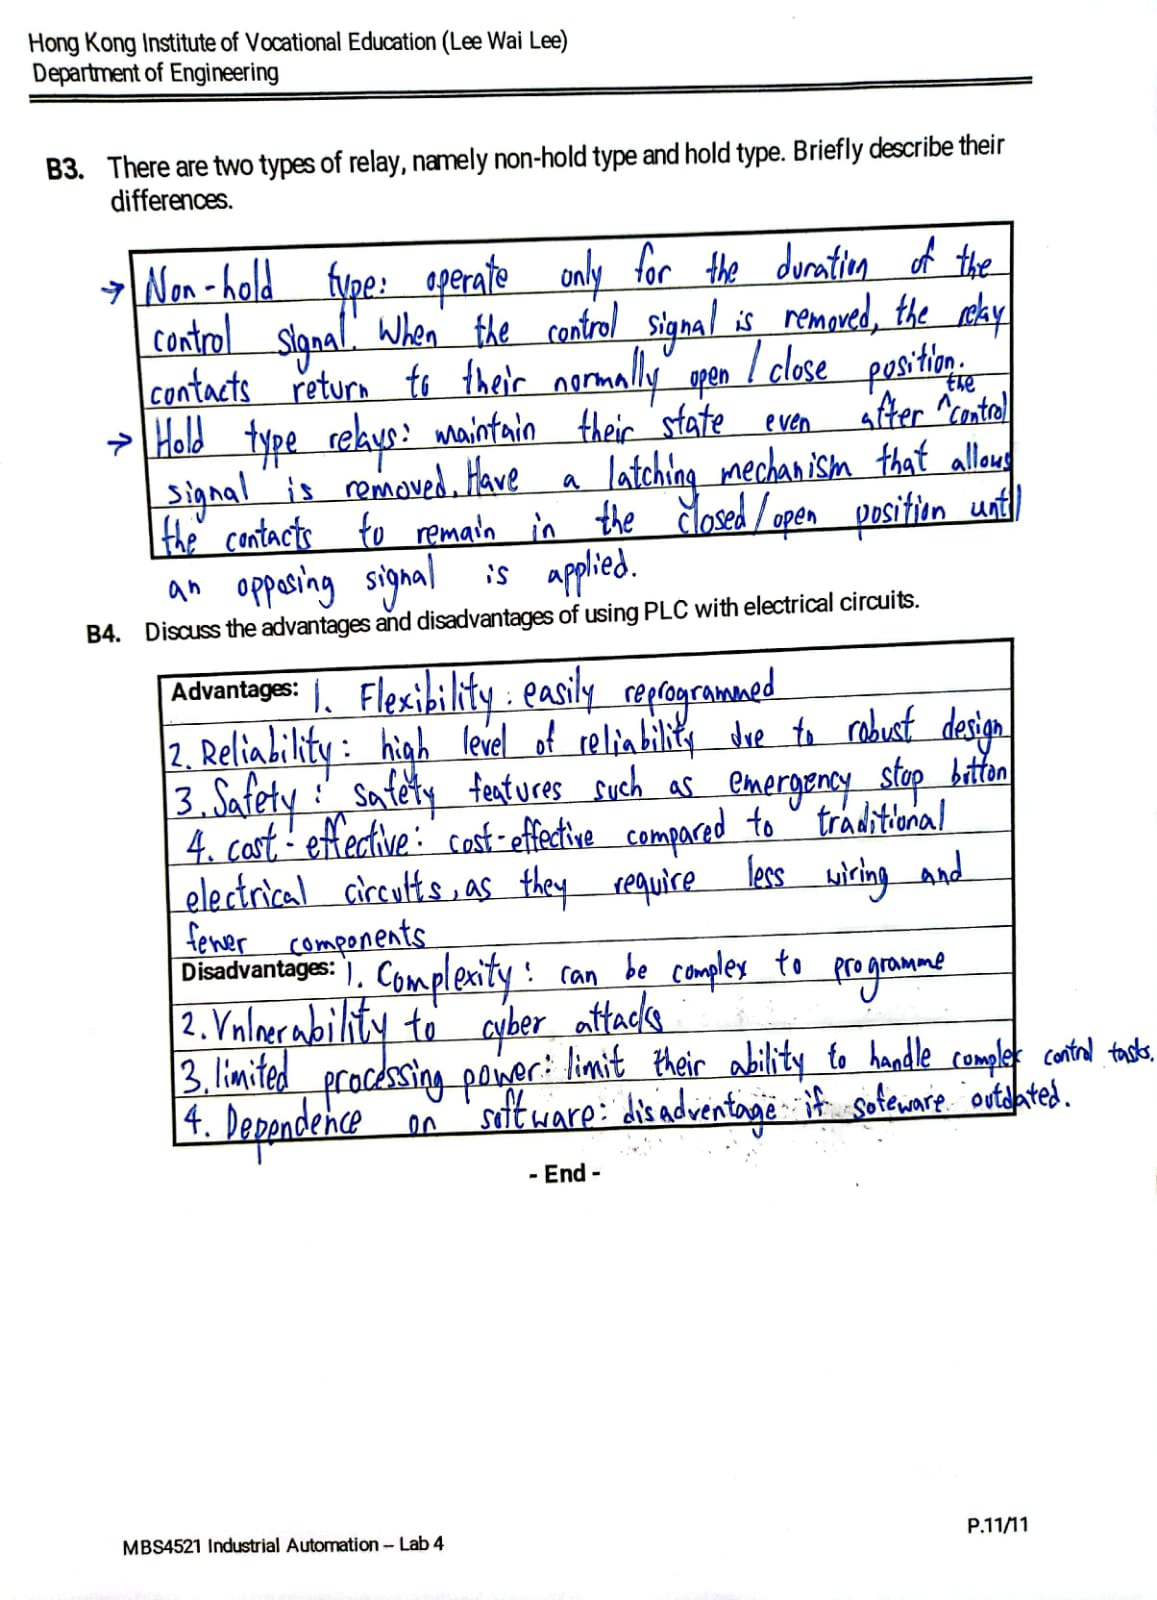 Hong Kong Institute of Vocational Education (Lee Wai Lee)
Department of Engineering
B3. There are two types of relay, namely non-hold type and hold type. Briefly describe their
differences.
→ Non-hold type: operate only for the duration of the
control signal. When the control signal is removed, the relay
contacts return to their normally open / close position.
the
→ Hold type relays: maintain their state even after ^control
signal is removed. Have a latching mechanism that allows
the contacts to remain in the closed/open position until
an opposing signal is applied.
B4. Discuss the advantages and disadvantages of using PLC with electrical circuits.
Advantages: 1. Flexibility: easily reprogrammed
2. Reliability: high level of reliability due to robust design
3. Safety: safety features such as emergency stop button
4. cost-effective: cost-effective compared to traditional
electrical circuits, as they require less wiring and
fewer components
Disadvantages: 1. Complexity: can be complex to programme
2. Vulnerability to cyber attacks
3. limited processing power: limit their ability to handle complex control tasks.
4. Dependence on software: disadvantage if sofeware outdated.
- End -
MBS4521 Industrial Automation – Lab 4
P.11/11